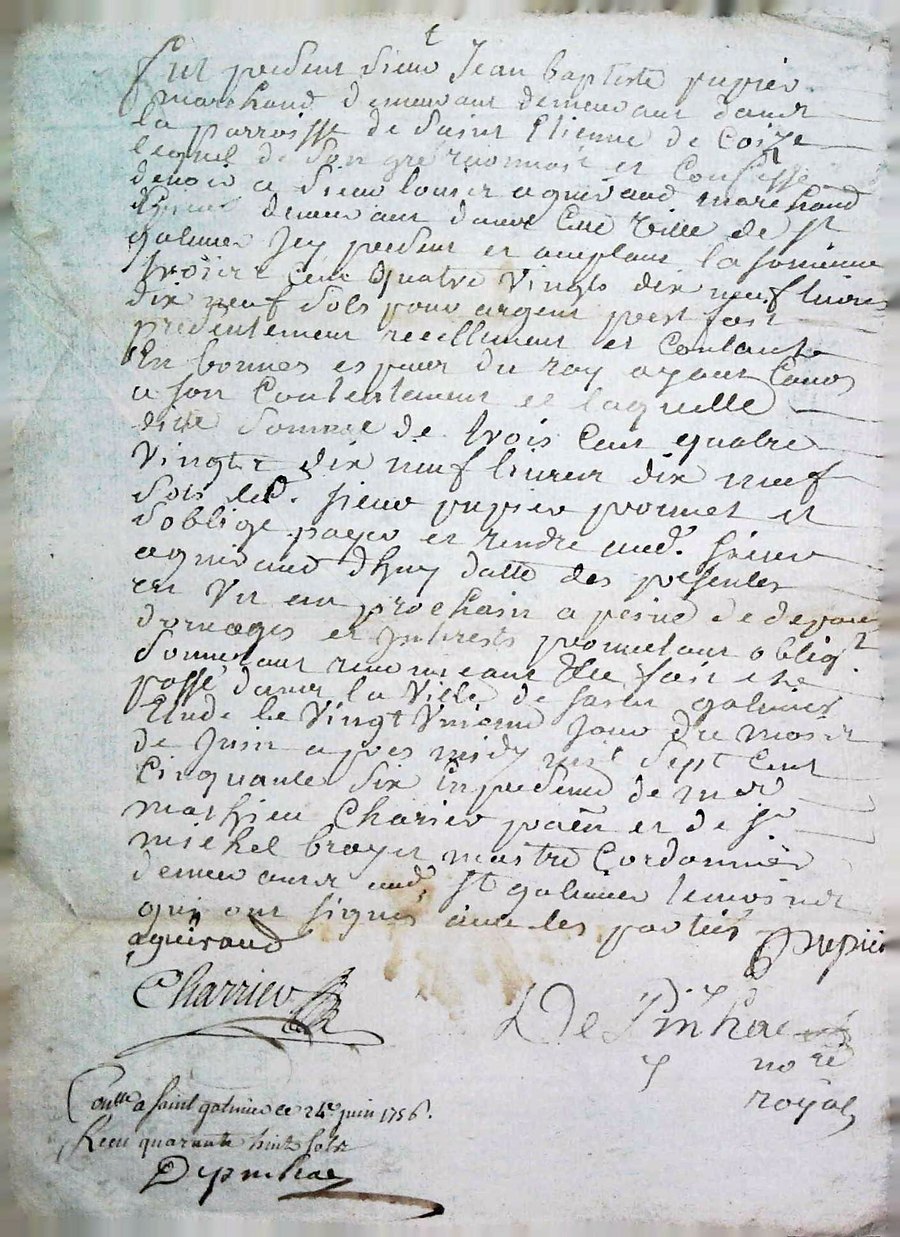 fut present sieur Jean baptiste pupier
marchand demeurant demeurant dans
la parroisse de Saint Etienne de Coize
lequel de son gré reconnoit et Confesse
devoir a sieur louis aguiraud marchand
demeurant dans cette Ville de st
galmier Icy present et acceptant la somme
trois Cent quatre Vingts dix neuf livres
dix neuf sols pour argent prest fait
presentement reellement et Contant
En bonnes especes du roy ayant Cours
a son Contentement et laquelle
ditte somme de trois Cent quatre
Vingts dix neuf livres dix neuf
sols led. sieur pupier promet et
s'oblige payer et rendre aud. sieur
aguiraud d'huy datte des presentes
en Un an prochain a peine de depens
domages et Interests promettant obligt
soumettant renonceant &c fait et
passé dans la Ville de saint galmier
Etude le Vingt Unieme Jour du mois
de Juin apres midy mil sept Cent
Cinquante six En presence de mer
mathieu Charier et de sr
michel broyer maitre Cordonnier
demeurants aud. st galmier temoins
qui ont signés avec les parties
aguiraud pupier
Charrier
De Pinhac
nore
royal
Conllé a saint galmier ce 24e juin 1756.
Reçu quarante huit sols
Depinhac